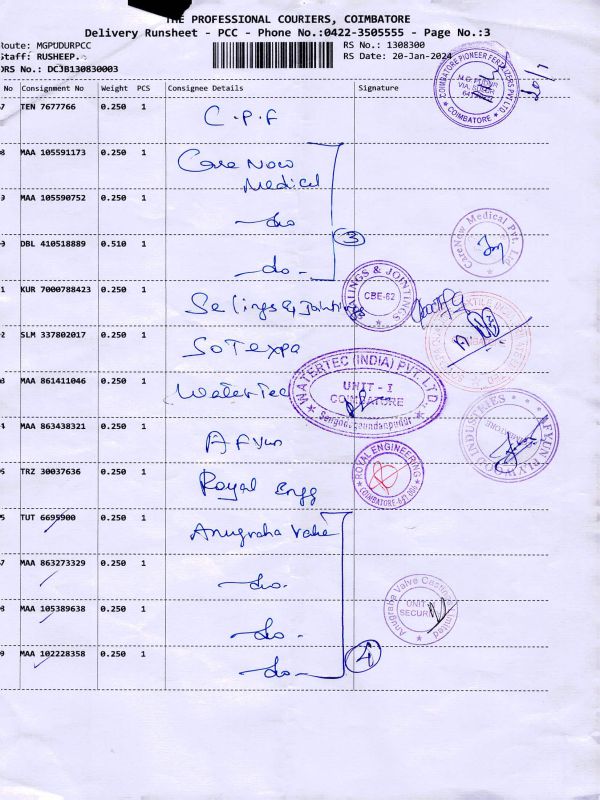 THE PROFESSIONAL COURIERS, COIMBATORE
Delivery Runsheet - PCC - Phone No.:0422-3505555 - Page No.:3
Route: MGPUDURPCC
RS No.: 1308300
Staff: RUSHEEP.
RS Date: 20-Jan-2024
DRS No.: DCJB130830003
No Consignment No Weight PCS Consignee Details Signature
7 TEN 7677766 0.250 1 C.P.F
COIMBATORE PIONEER FERTILIZERS PVT LTD
COIMBATORE
20/1
8 MAA 105591173 0.250 1 Care Now
Medical
9 MAA 105590752 0.250 1 -do
CareNow Medical Pvt. Ltd.
DBL 410518889 0.510 1 -do-
3
1 KUR 7000788423 0.250 1 Selings & Jointings
SEALINGS & JOINTINGS
CBE-62
2 SLM 337802017 0.250 1 SOTEXPA
3 MAA 861411046 0.250 1 Watertec
WATERTEC (INDIA) PVT. LTD.
UNIT - I
COIMBATORE
4 MAA 863438321 0.250 1 Afyun
AFYUN PLYWOOD INDUSTRIES
5 TRZ 30037636 0.250 1 Royal Engg
ROYAL ENGINEERING
COIMBATORE-641 006
TUT 6695900 0.250 1 Anugraha Valve
7 MAA 863273329 0.250 1 -do.
8 MAA 105389638 0.250 1 -do-
Anugraha Valve Castings Limited
UNIT
SECURITY
9 MAA 102228358 0.250 1 -do-
4